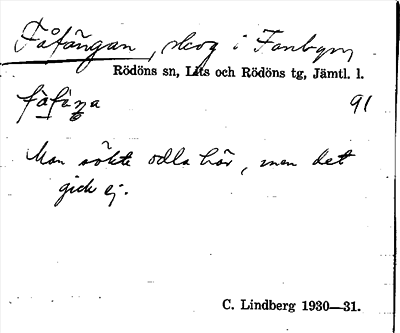 Fåfängan, skog i Fanbyn,
Rödöns sn, Lits och Rödöns tg, Jämtl. l.
fåfäŋa 91
Man sökte odla här, men det
gick ej.
C. Lindberg 1930—31.